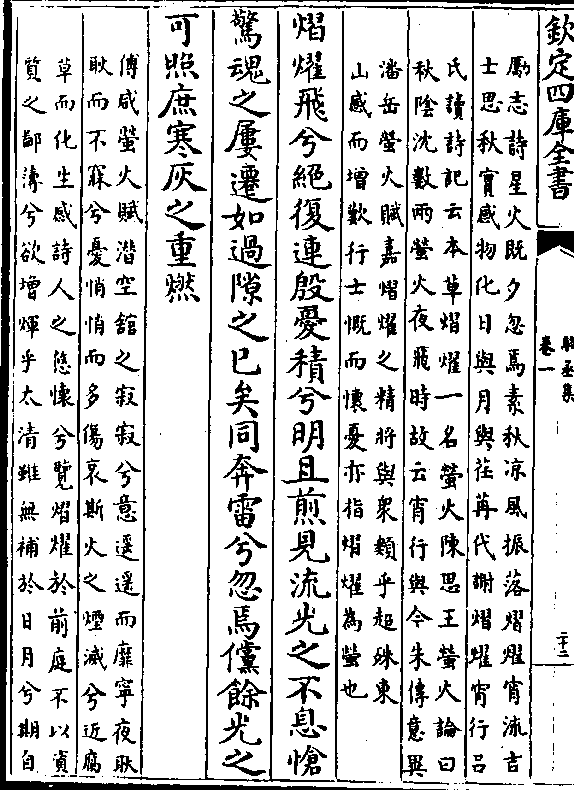 欽定四庫全書
駱丞集
卷一
二十二
勵志詩星火既夕忽焉素秋凉風振落熠燿宵流吉
士思秋實感物化日與月與荏苒代謝熠燿宵行吕
氏讀詩記云本草熠燿一名螢火陳思王螢火論曰
秋陰沈數雨螢火夜飛時故云宵行與今朱傳意異
潘岳螢火賦嘉熠燿之精將與衆類乎超殊東
山感而增歎行士慨而懷憂亦指熠燿為螢也
熠燿飛兮絕復連殷憂積兮明且煎見流光之不息愴
驚魂之屢遷如過隙之已矣同奔雷兮忽焉儻餘光之
可照庶寒灰之重燃
傅咸螢火賦潛空舘之寂寂兮意遥遥而靡寧夜耿
耿而不寐兮憂悄悄而多傷哀斯火之煙滅兮近腐
草而化生感詩人之悠懷兮覽熠燿於前庭不以資
質之鄙薄兮欲增輝乎太清雖無補於日月兮期自